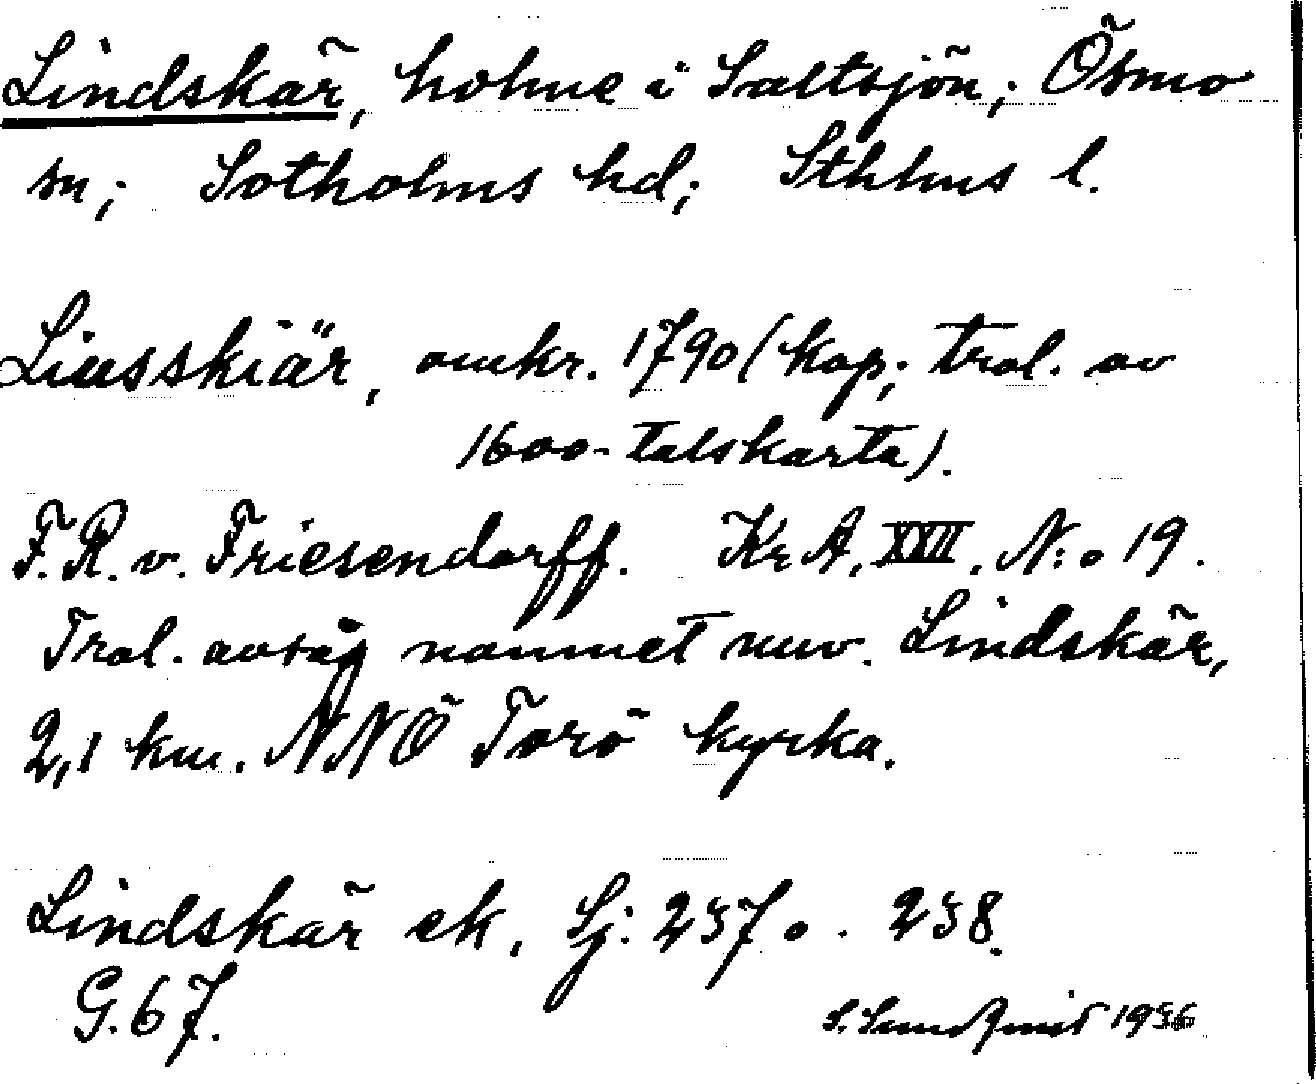 Lindskär, holme i Saltsjön; Ösmo
sn; Sotholms hd; Sthlms l.
Liusskiär, omkr. 1790 (kop; trol. av
1600-talskarta).
F. R. v. Friesendorff. Kr A, XXII, N:o 19.
Trol. avsåg namnet nuv. Lindskär,
2,1 km. NNÖ Torö kyrka.
Lindskär ek, Sj: 237 o. 238.
G. 67.
S. Sundquist 1936